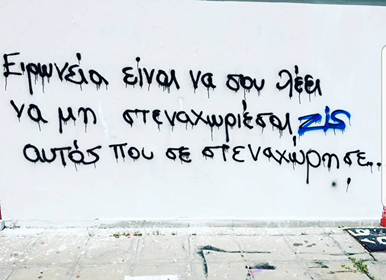 Ειρωνεία είναι να σου λέει
να μη στεναχωριέσαι ZiS
αυτός που σε στεναχώρησε..